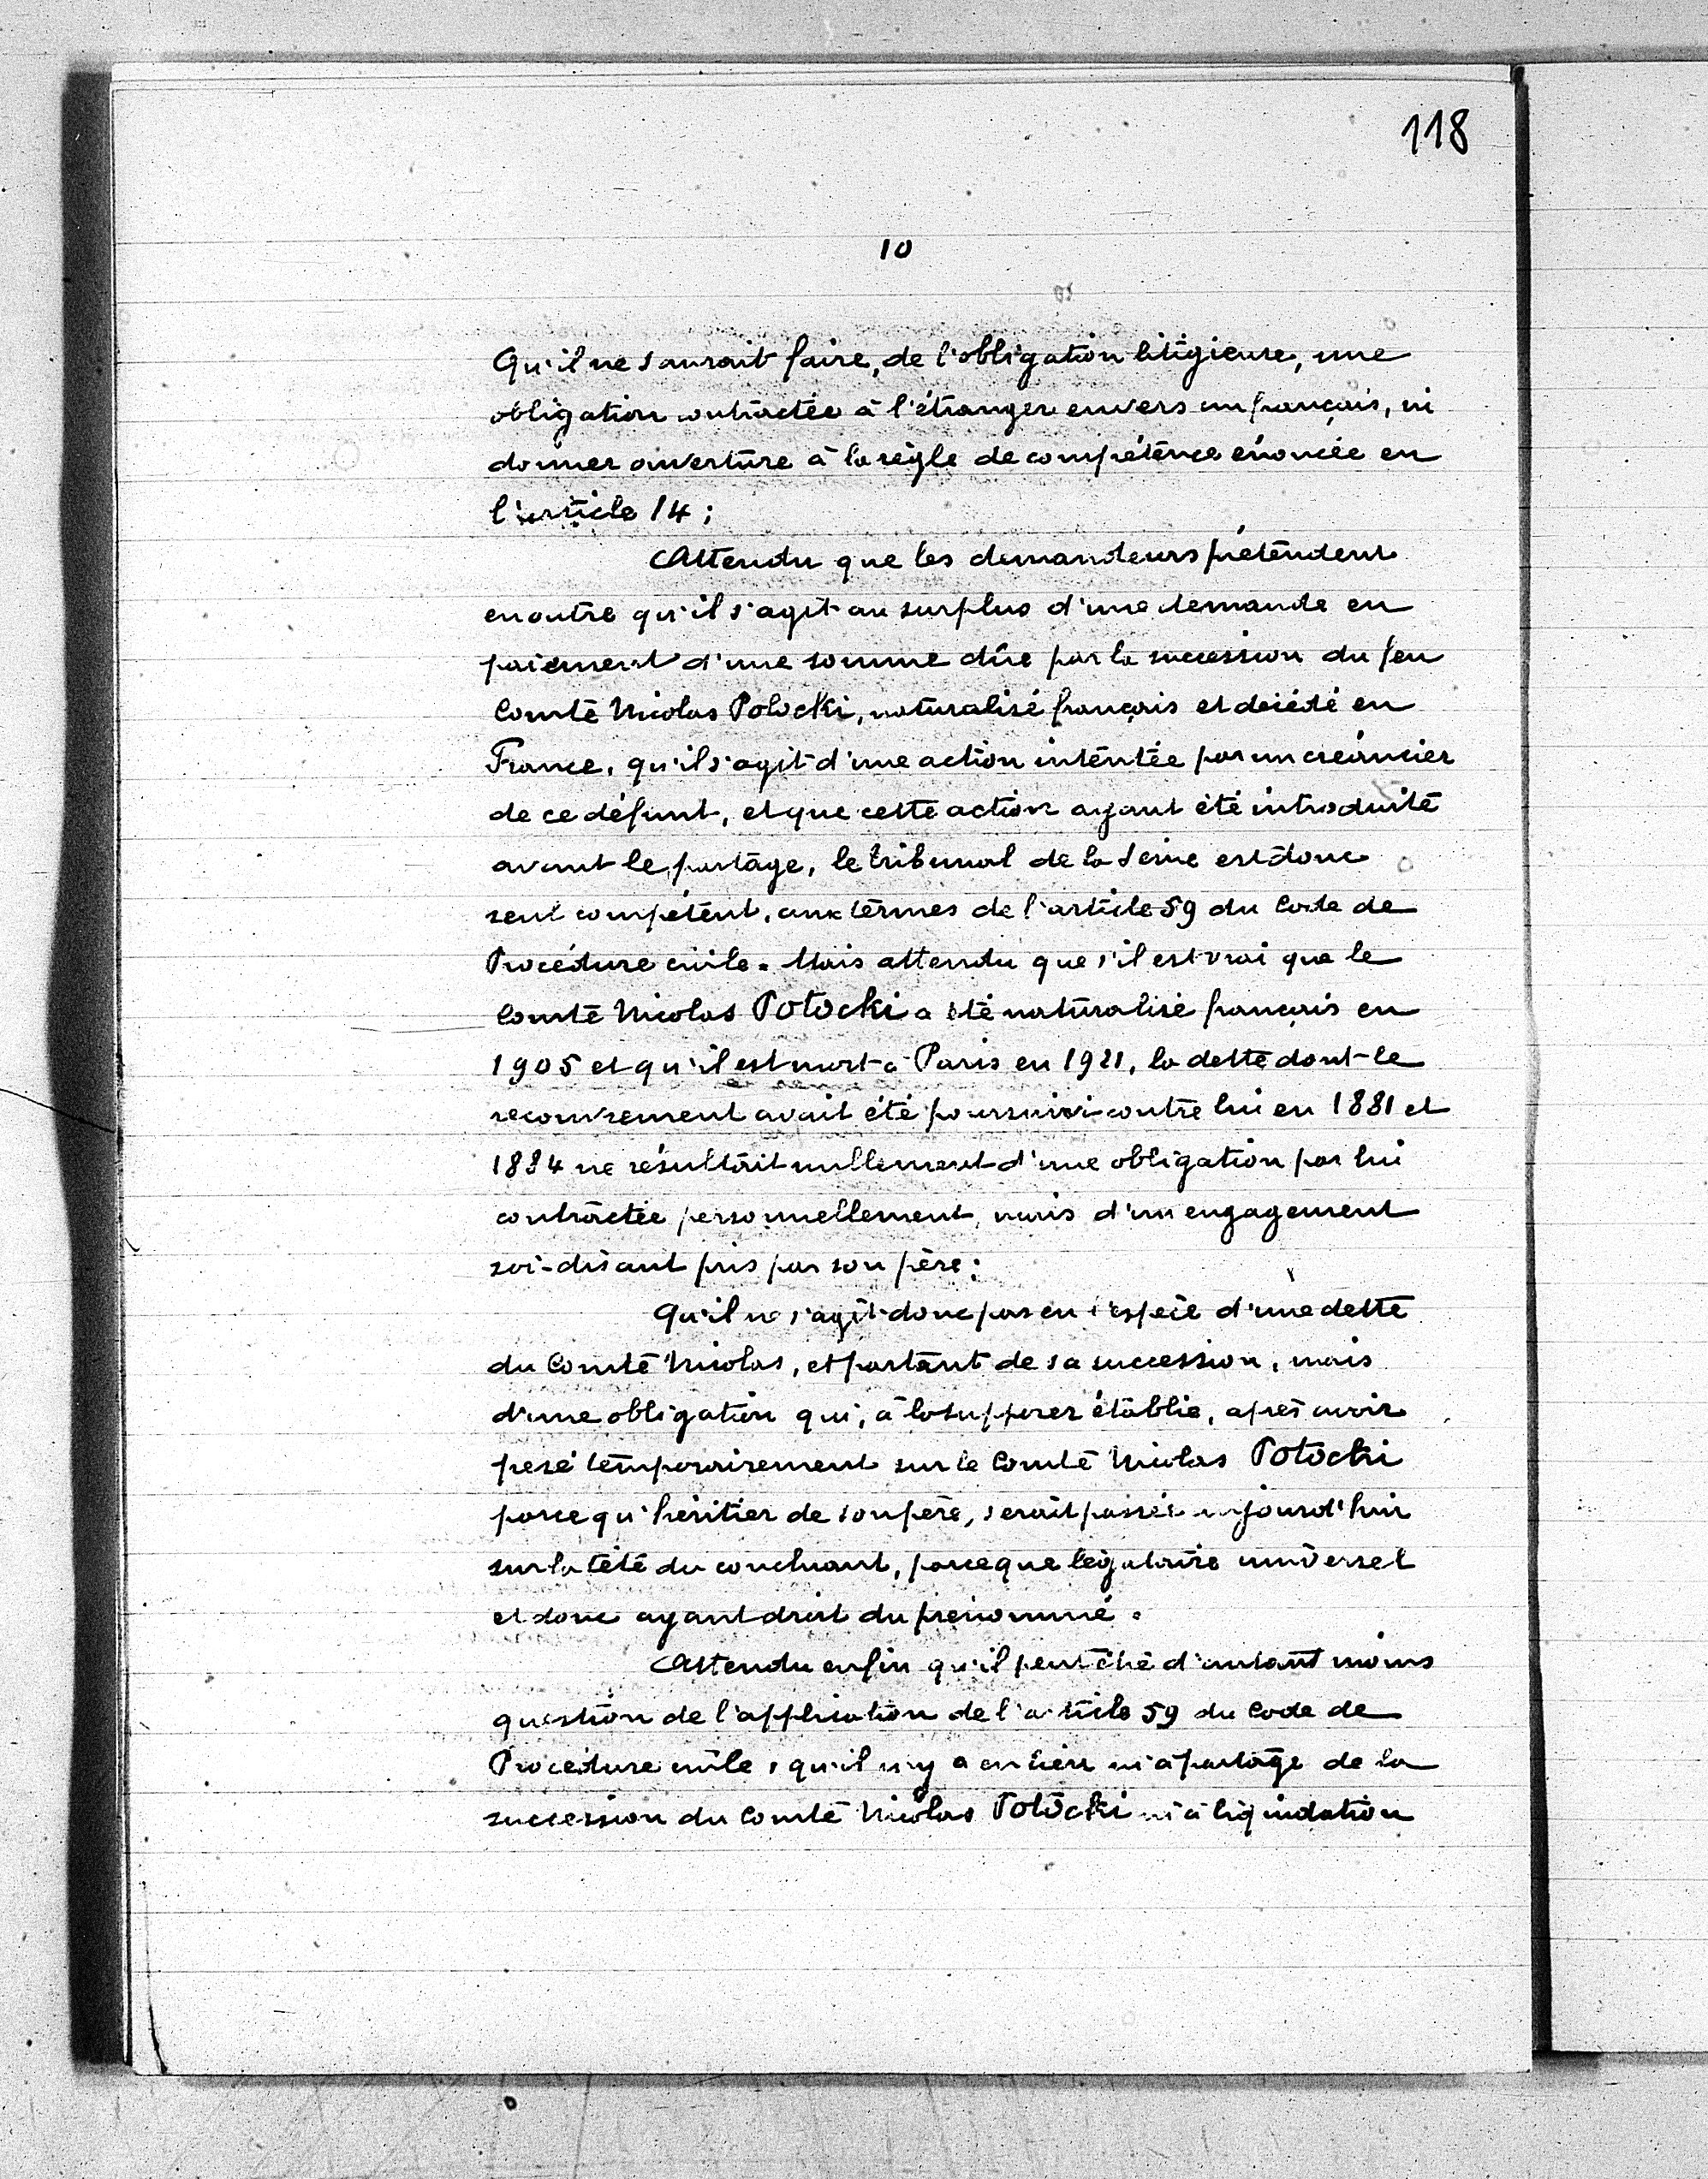 118
10
Qu'il ne saurait faire, de l'obligation litigieuse, une
obligation contractée à l'étranger envers un français, ni
donner ouverture à la règle de compétence énoncée en
l'article 14 ;
Attendu que les demandeurs prétendent
en outre qu'il s'agit au surplus d'une demande en
paiement d'une somme dûe par la succession du feu
Comte Nicolas Potocki, naturalisé français et décédé en
France, qu'il s'agit d'une action intentée par un créancier
de ce défunt, et que cette action ayant été introduite
avant le partage, le tribunal de la Seine est donc
seul compétent, aux termes de l'article 59 du Code de
Procédure civile. Mais attendu que s'il est vrai que le
Comte Nicolas Potocki a été naturalisé français en
1905 et qu'il est mort à Paris en 1921, la dette dont le
recouvrement avait été poursuivi contre lui en 1881 et
1884 ne résultait nullement d'une obligation par lui
contractée personnellement, mais d'un engagement
soi-disant pris par son père ;
Qu'il ne s'agit donc pas en l'espèce d'une dette
du Comte Nicolas, et partant de sa succession, mais
d'une obligation qui, à la supposer établie, après avoir
pesé temporairement sur le Comte Nicolas Potocki
parce qu'héritier de son père, serait passée aujourd'hui
sur la tête du concluant, parce que légataire universel
et donc ayant droit du prénommé.
Attendu enfin qu'il peut être d'autant moins
question de l'application de l'article 59 du Code de
Procédure civile, qu'il n'y a eu lieu ni à partage de la
succession du Comte Nicolas Potocki ni à liquidation